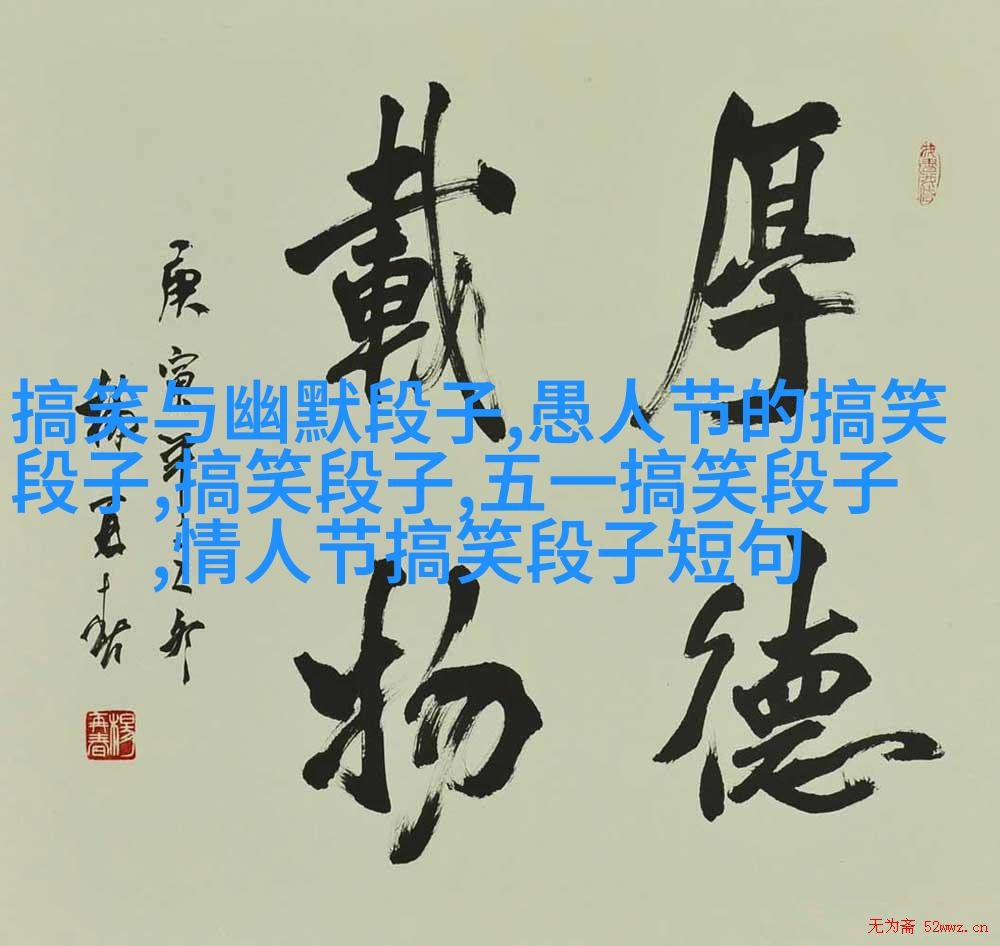 厚德
載物
庚寅年
楊再春
楊再春
搞笑与幽默段子,愚人节的搞笑
段子,搞笑段子,五一搞笑段子
,情人节搞笑段子短句
无为斋 52wwz.cn